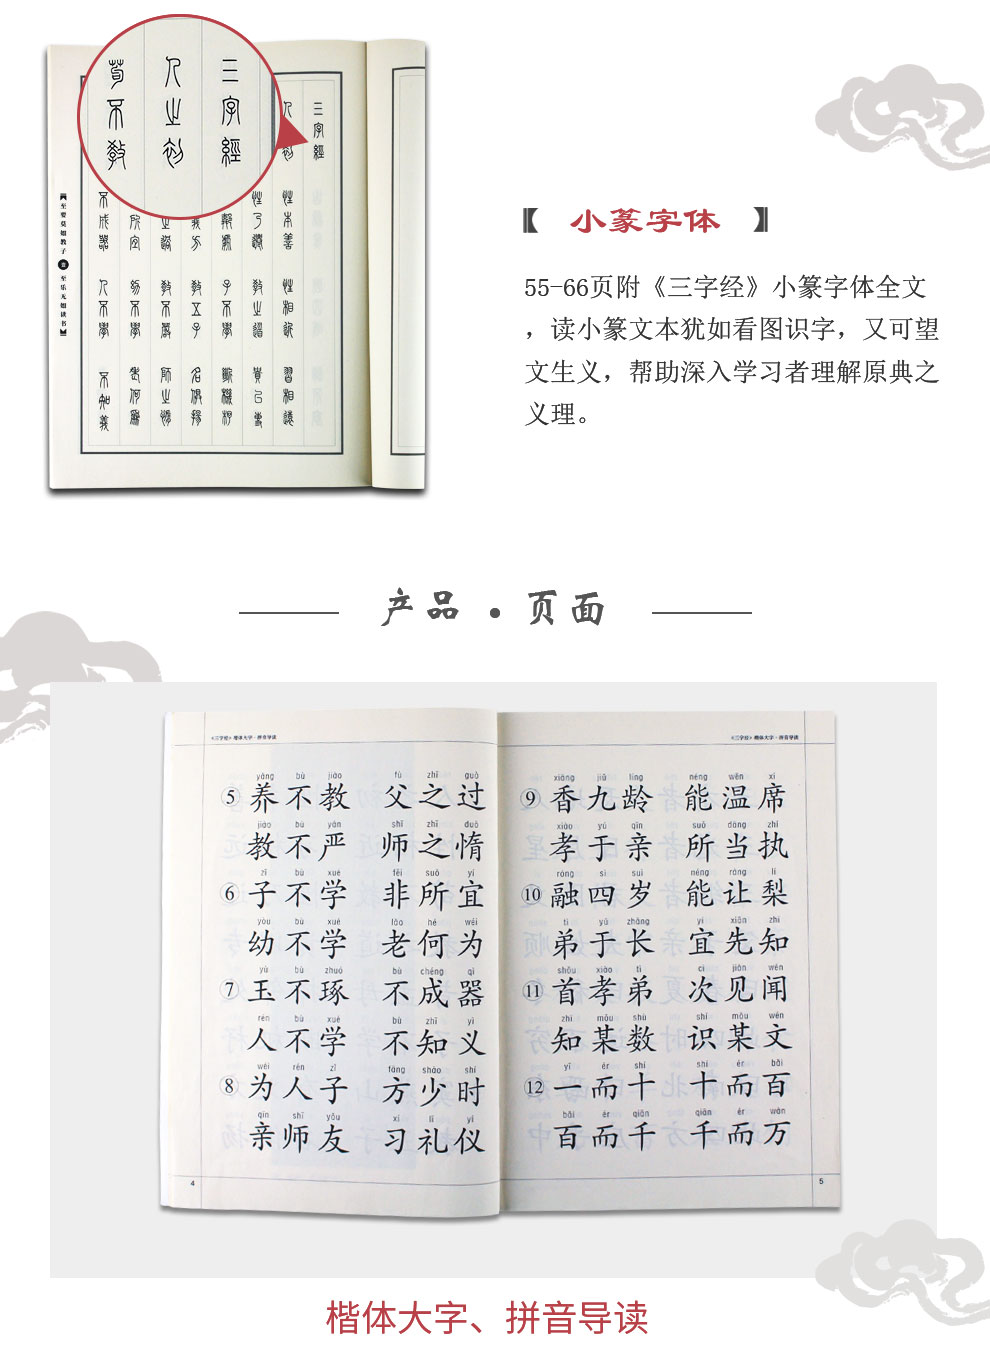 三字經
人之初
苟不教
三字經
人之初 性本善 性相近 習相遠
至要莫如教子 至乐无如读书
【 小篆字体 】
55-66页附《三字经》小篆字体全文
，读小篆文本犹如看图识字，又可望
文生义，帮助深入学习者理解原典之
义理。
产品·页面
《三字经》楷体大字·拼音导读
yǎng bù jiào fù zhī guò
⑤养不教 父之过
jiào bù yán shī zhī duò
教不严 师之惰
zǐ bù xué fēi suǒ yí
⑥子不学 非所宜
yòu bù xué lǎo hé wéi
幼不学 老何为
yù bù zhuó bù chéng qì
⑦玉不琢 不成器
rén bù xué bù zhī yì
人不学 不知义
wéi rén zǐ fāng shào shí
⑧为人子 方少时
qīn shī yǒu xí lǐ yí
亲师友 习礼仪
4
《三字经》楷体大字·拼音导读
xiāng jiǔ líng néng wēn xí
⑨香九龄 能温席
xiào yú qīn suǒ dāng zhí
孝于亲 所当执
róng sì suì néng ràng lí
⑩融四岁 能让梨
tì yú zhǎng yí xiān zhī
弟于长 宜先知
shǒu xiào tì cì jiàn wén
⑪首孝弟 次见闻
zhī mǒu shù shí mǒu wén
知某数 识某文
yī ér shí shí ér bǎi
⑫一而十 十而百
bǎi ér qiān qiān ér wàn
百而千 千而万
5
楷体大字、拼音导读